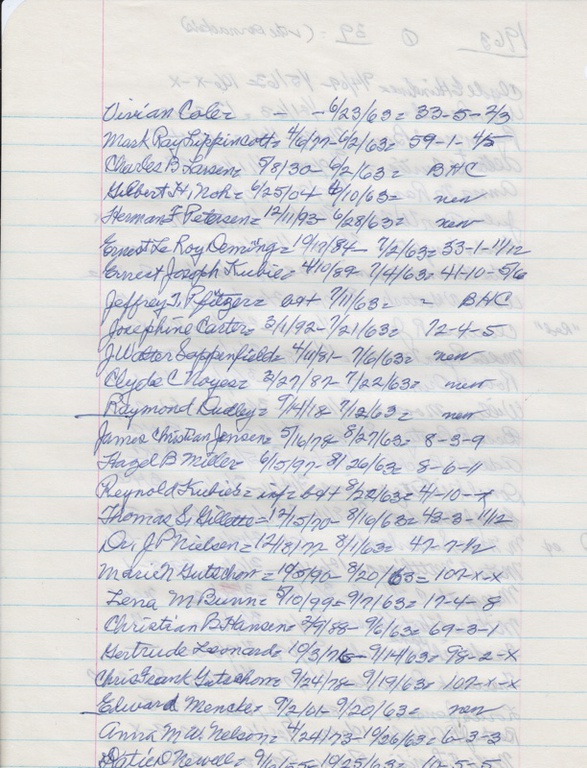 1963 ① 39
Vivian Coler - - 6/23/63 = 33-5-2/3
Mark Ray Lippincott = 4/6/77-6/2/63 = 59-1-4/5
Charles B Larsen = 5/8/30-6/2/63 = BHC
Gilbert H. Noh = 6/25/04 6/10/63 = new
Herman F Petersen = 12/11/93-6/28/63 = new
Ernest Le Roy Deming = 10/17/84-7/2/63 = 33-1-11/12
Ernest Joseph Kubie = 4/10/89-7/4/63 = 41-10-5/6
Jeffrey T. Pfitzer = b&d 7/11/63 = - BHC
Josephine Carter = 3/1/92-7/21/63 = 72-4-5
J Walter Sappenfield = 4/11/81-7/6/63 = new
Clyde C Noyes = 3/27/87-7/22/63 = new
Raymond Dudley = 9/14/18 7/12/63 = new
James Christian Jensen = 5/16/78 8/27/63 = 8-3-9
Hazel B Miller = 6/15/97-8/26/63 = 8-6-11
Reynold Kubie's = inf = b&d 8/22/63 = 41-10-x
Thomas S. Gillette = 12/15/70-8/16/63 = 43-3-1/2
Dr. J P Nielson = 12/8/77-8/1/63 = 47-7-1/2
Marie N Gutschow = 10/5/90-8/20/63 = 107-x-x
Lena M Bunn = 5/10/99 = 9/7/63 = 17-4-8
Christian B Hansen = 2/9/88-9/6/63 = 69-3-1
Gertrude Leonard = 10/3/76-9/14/63 = 98-2-x
Chris Frank Gutschow = 9/24/78-9/19/63 = 107-x-x
Edward Mencke = 9/2/61-9/20/63 = new
Anna M W. Nelson = 4/24/73-9/26/63 = 6-3-3
D Newell = 9/25/63 = 112-5-5